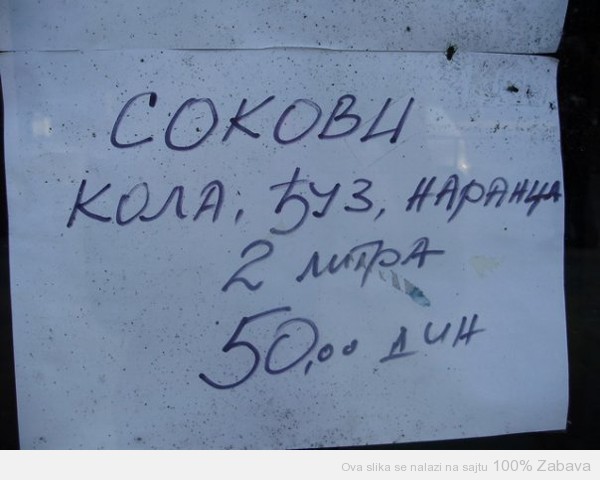 СОКОВИ
КОЛА, ЂУЗ, НАРАНЦА
2 ЛИТРА
50,00 ДИН
Ova slika se nalazi na sajtu 100% Zabava